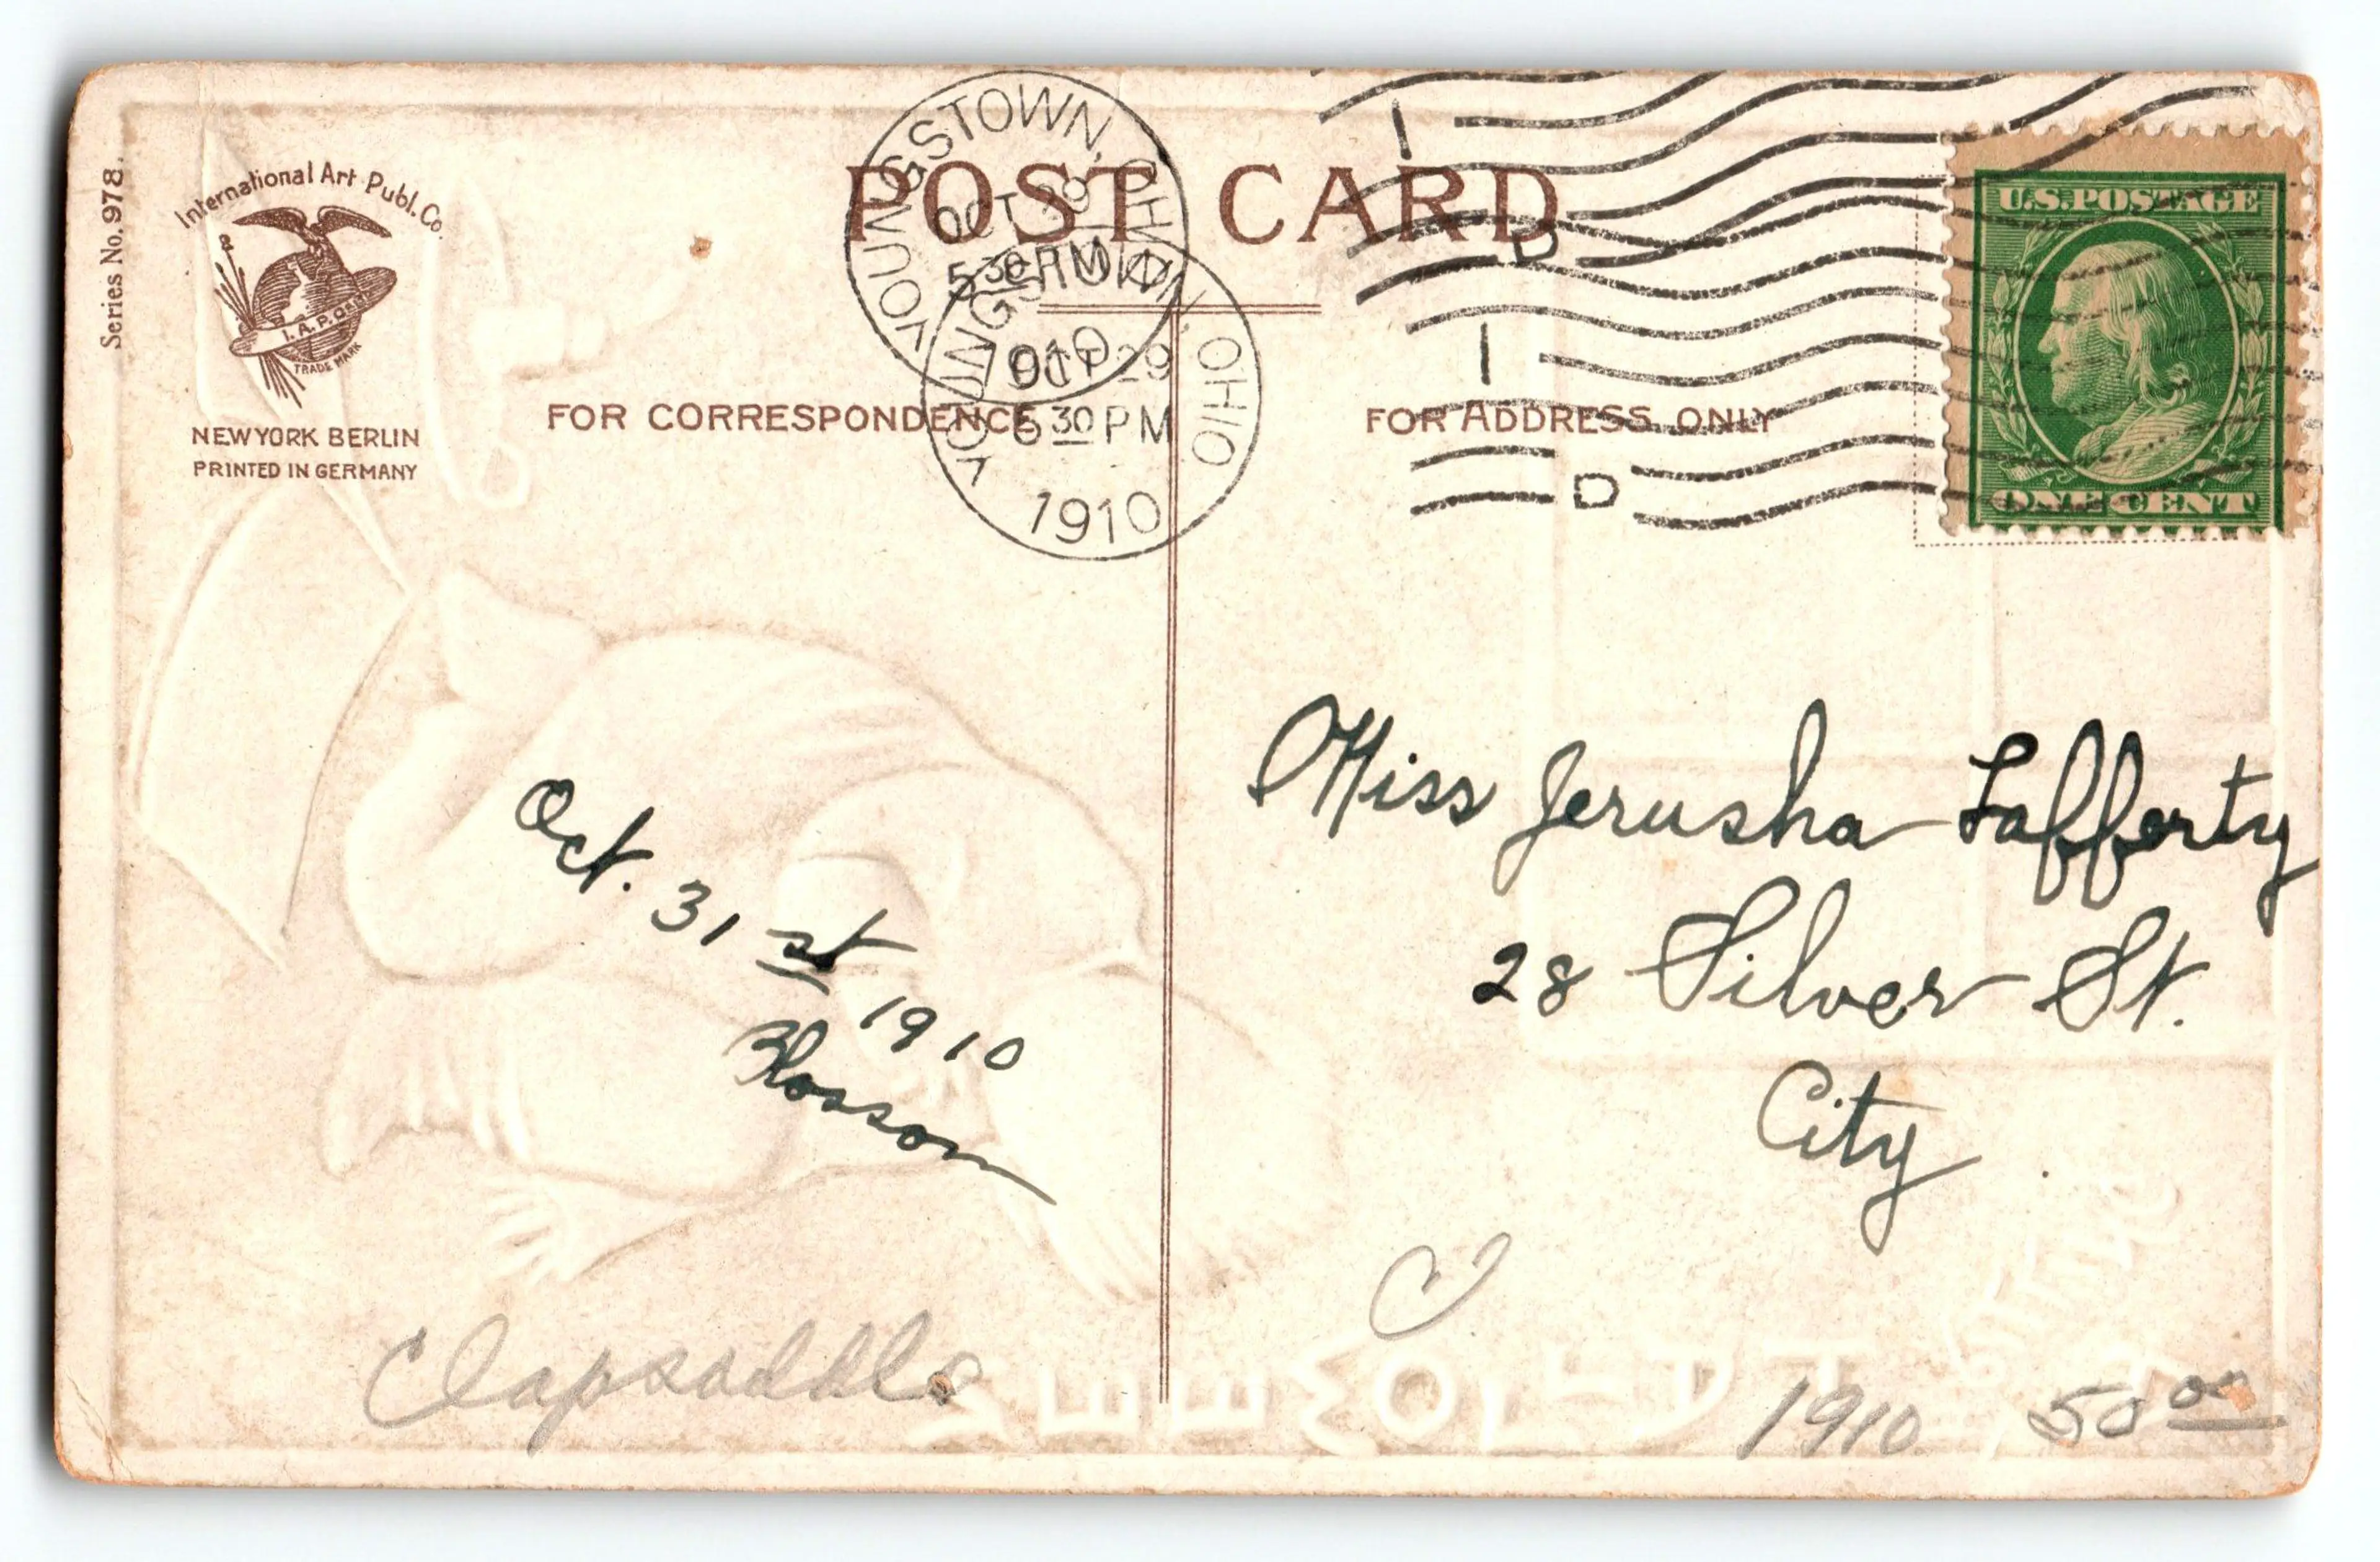 Series No. 978.
International Art Publ. Co.
TRADE MARK
NEW YORK BERLIN
PRINTED IN GERMANY
POST CARD
FOR CORRESPONDENCE
FOR ADDRESS ONLY
YOUNGSTOWN, OHIO
OCT 29
5 30 PM
1910
YOUNGSTOWN, OHIO
OCT 29
6 30 PM
1910
I D
I D
U.S. POSTAGE
ONE CENT
Oct. 31 st 1910
Blossom
Miss Jerusha Lafferty
28 Silver St.
City
Clapsaddle
1910 50 00